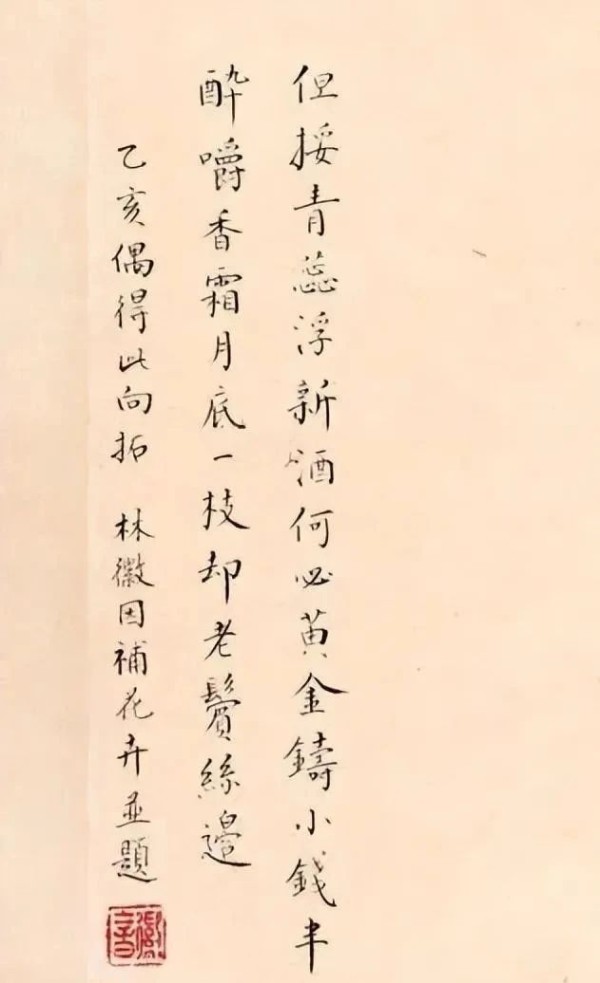 但挼青蕊浮新酒何必黄金鑄小錢半
醉嚼香霜月底一枝却老鬢絲邊
乙亥偶得此向拓 林徽因補花卉並題
徽音